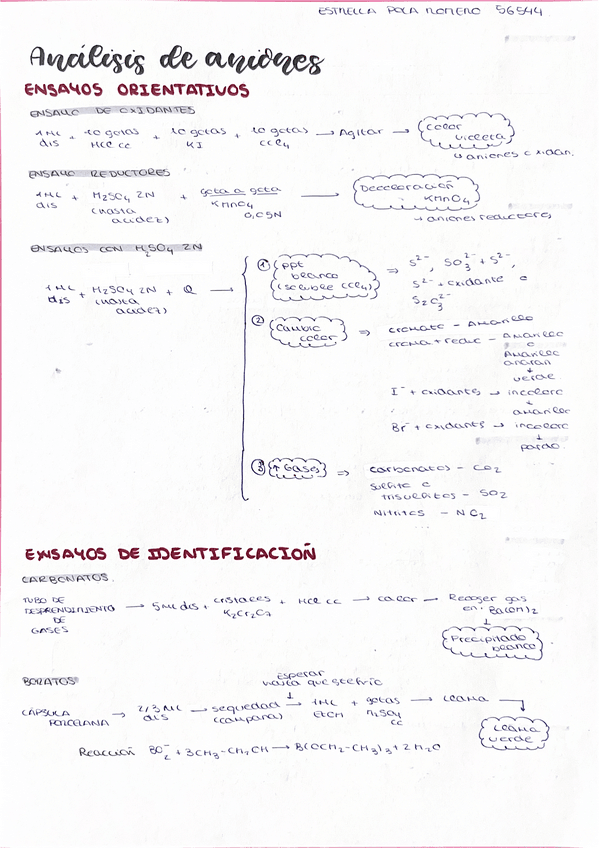 ESTRELLA POLA ROMERO 56544
Análisis de aniones
ENSAYOS ORIENTATIVOS
ENSAYO DE OXIDANTES
1 ML dis + 10 gotas HCl cc + 10 gotas KI + 10 gotas CCl4 → Agitar → Color violeta
↳ aniones oxidan.
ENSAYO REDUCTORES
1 ML dis + H2SO4 2N (hasta acidez) + gota a gota KMnO4 0,05N → Decoloración KMnO4
→ aniones reductores
ENSAYOS CON H2SO4 2N
1 ML dis + H2SO4 2N (hasta acidez) + Q →
① ppt blanco (soluble CCl4) ⇒ S²⁻, SO3²⁻ + S²⁻, S²⁻ + oxidante o S2O3²⁻
② Cambio color ⇒ cromato - Amarillo
croma + reduc - Amarillo o Amarillo naran ↓ verde.
I⁻ + oxidantes → incoloro ↓ amarillo
Br⁻ + oxidantes → incoloro ↓ pardo.
③ ↑ Gases ⇒ carbonatos - CO2
sulfito o tiosulfitos - SO2
Nitritos - NO2
ENSAYOS DE IDENTIFICACIOÑ
CARBONATOS.
TUBO DE DESPRENDIMIENTO DE GASES → 5 ML dis + cristales K2Cr2O7 + HCl cc → calor → Recoger gas en: Ba(OH)2
↓
Precipitado blanco
BORATOS
Esperar hasta que se enfríe
↓
CÁPSULA PORCELANA → 2/3 ML dis → sequedad (campana) → 1 ML EtOH + gotas H2SO4 cc → llama
Llama verde
Reaccioñ BO2⁻ + 3CH3-CH2OH → B(OCH2-CH3)3 + 2H2O